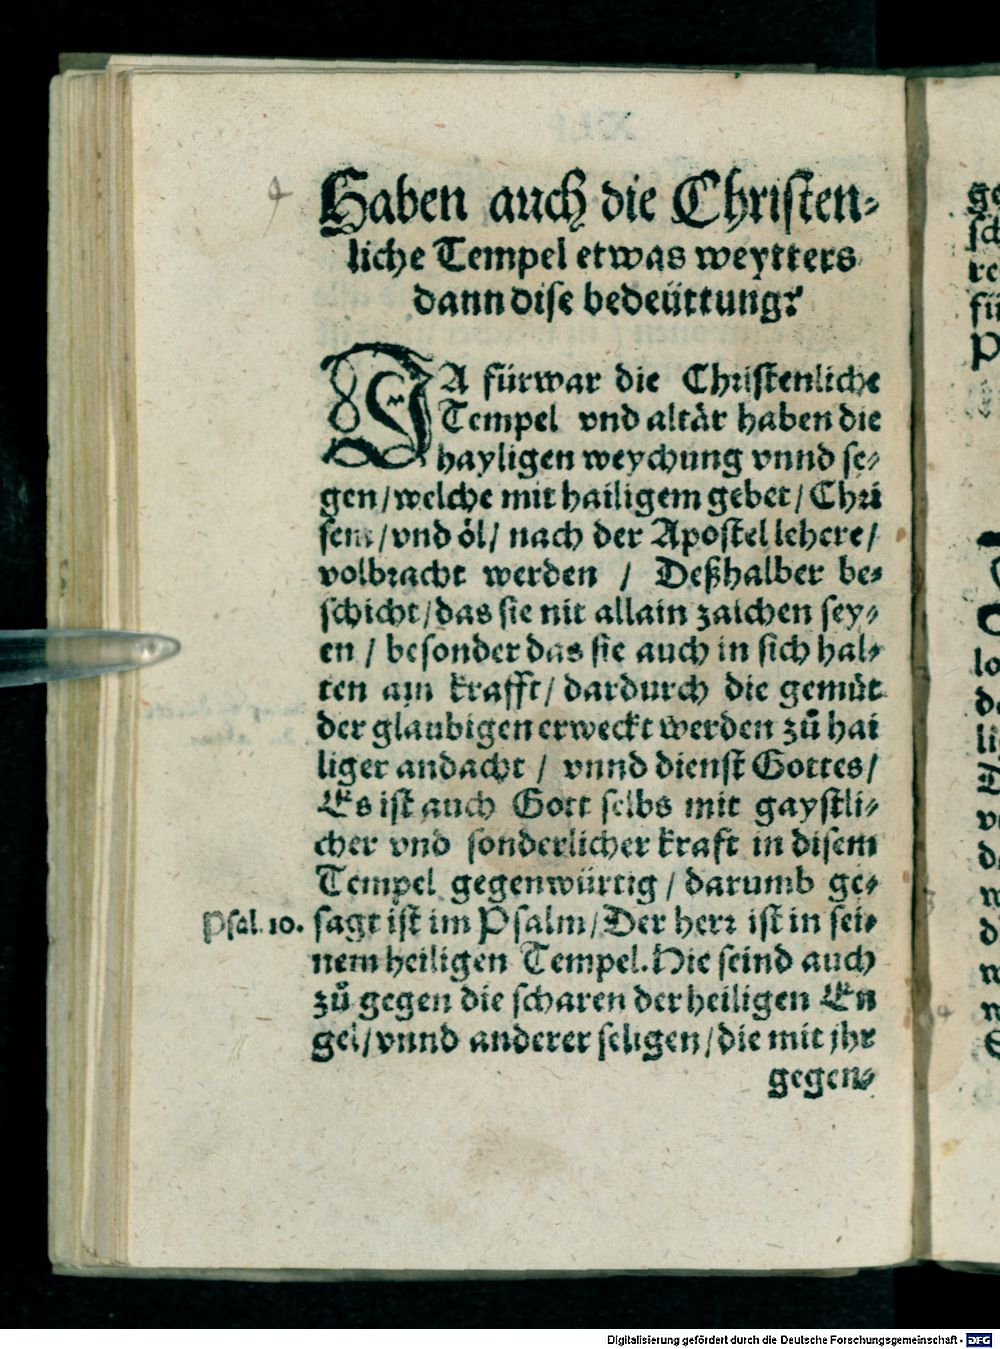 Haben auch die Christen⸗
liche Tempel etwas weytters
dann dise bedeüttung?
JA fürwar die Christenliche
Tempel vnd altär haben die
hayligen weychung vnnd se⸗
gen/welche mit hailigem gebet/Chri
sem/vnd öl/ nach der Apostel lehere/
volbracht werden / Deßhalber be⸗
schicht/das sie nit allain zaichen sey⸗
en / besonder das sie auch in sich hal⸗
ten ain krafft/ dardurch die gemüt
der glaubigen erweckt werden zů hai
liger andacht / vnnd dienst Gottes/
Es ist auch Gott selbs mit gaystli⸗
cher vnd sonderlicher kraft in disem
Tempel gegenwürtig / darumb ge⸗
Psal. 10. sagt ist im Psalm/Der herr ist in sei⸗
nem heiligen Tempel. Hie seind auch
zů gegen die scharen der heiligen En
gel/vnnd anderer seligen/die mit jhr
gegen⸗
Digitalisierung gefördert durch die Deutsche Forschungsgemeinschaft - DFG